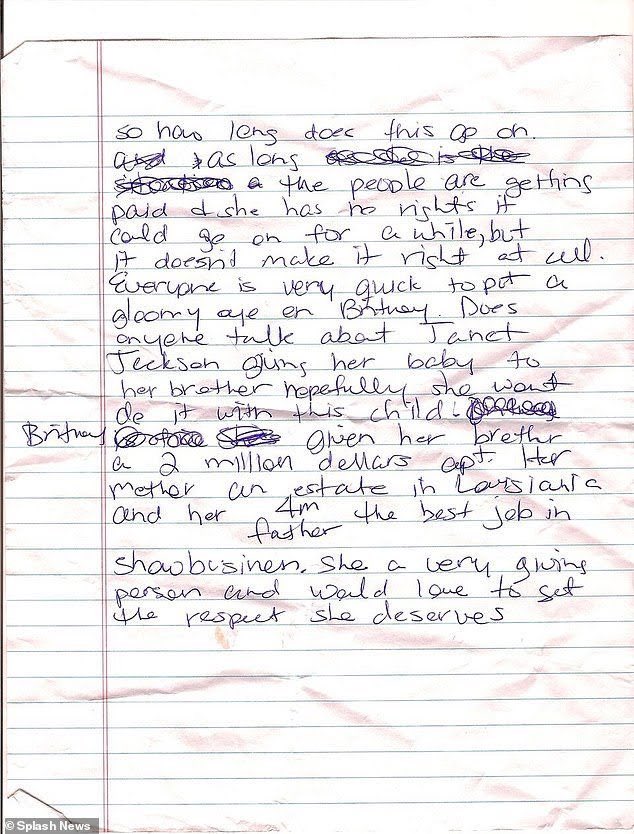 so how long does this go on.
as long
the people are getting
paid & she has no rights it
could go on for a while, but
it doesn't make it right at all.
Everyone is very quick to put a
gloomy eye on Britney. Does
anyone talk about Janet
Jackson giving her baby to
her brother hopefully she wont
do it with this child.
Britney given her brother
a 2 million dollars apt. Her
mother an estate in Louisiania
and her 4m the best job in
father
showbusiness. She a very giving
person and would love to get
the respect she deserves
© Splash News